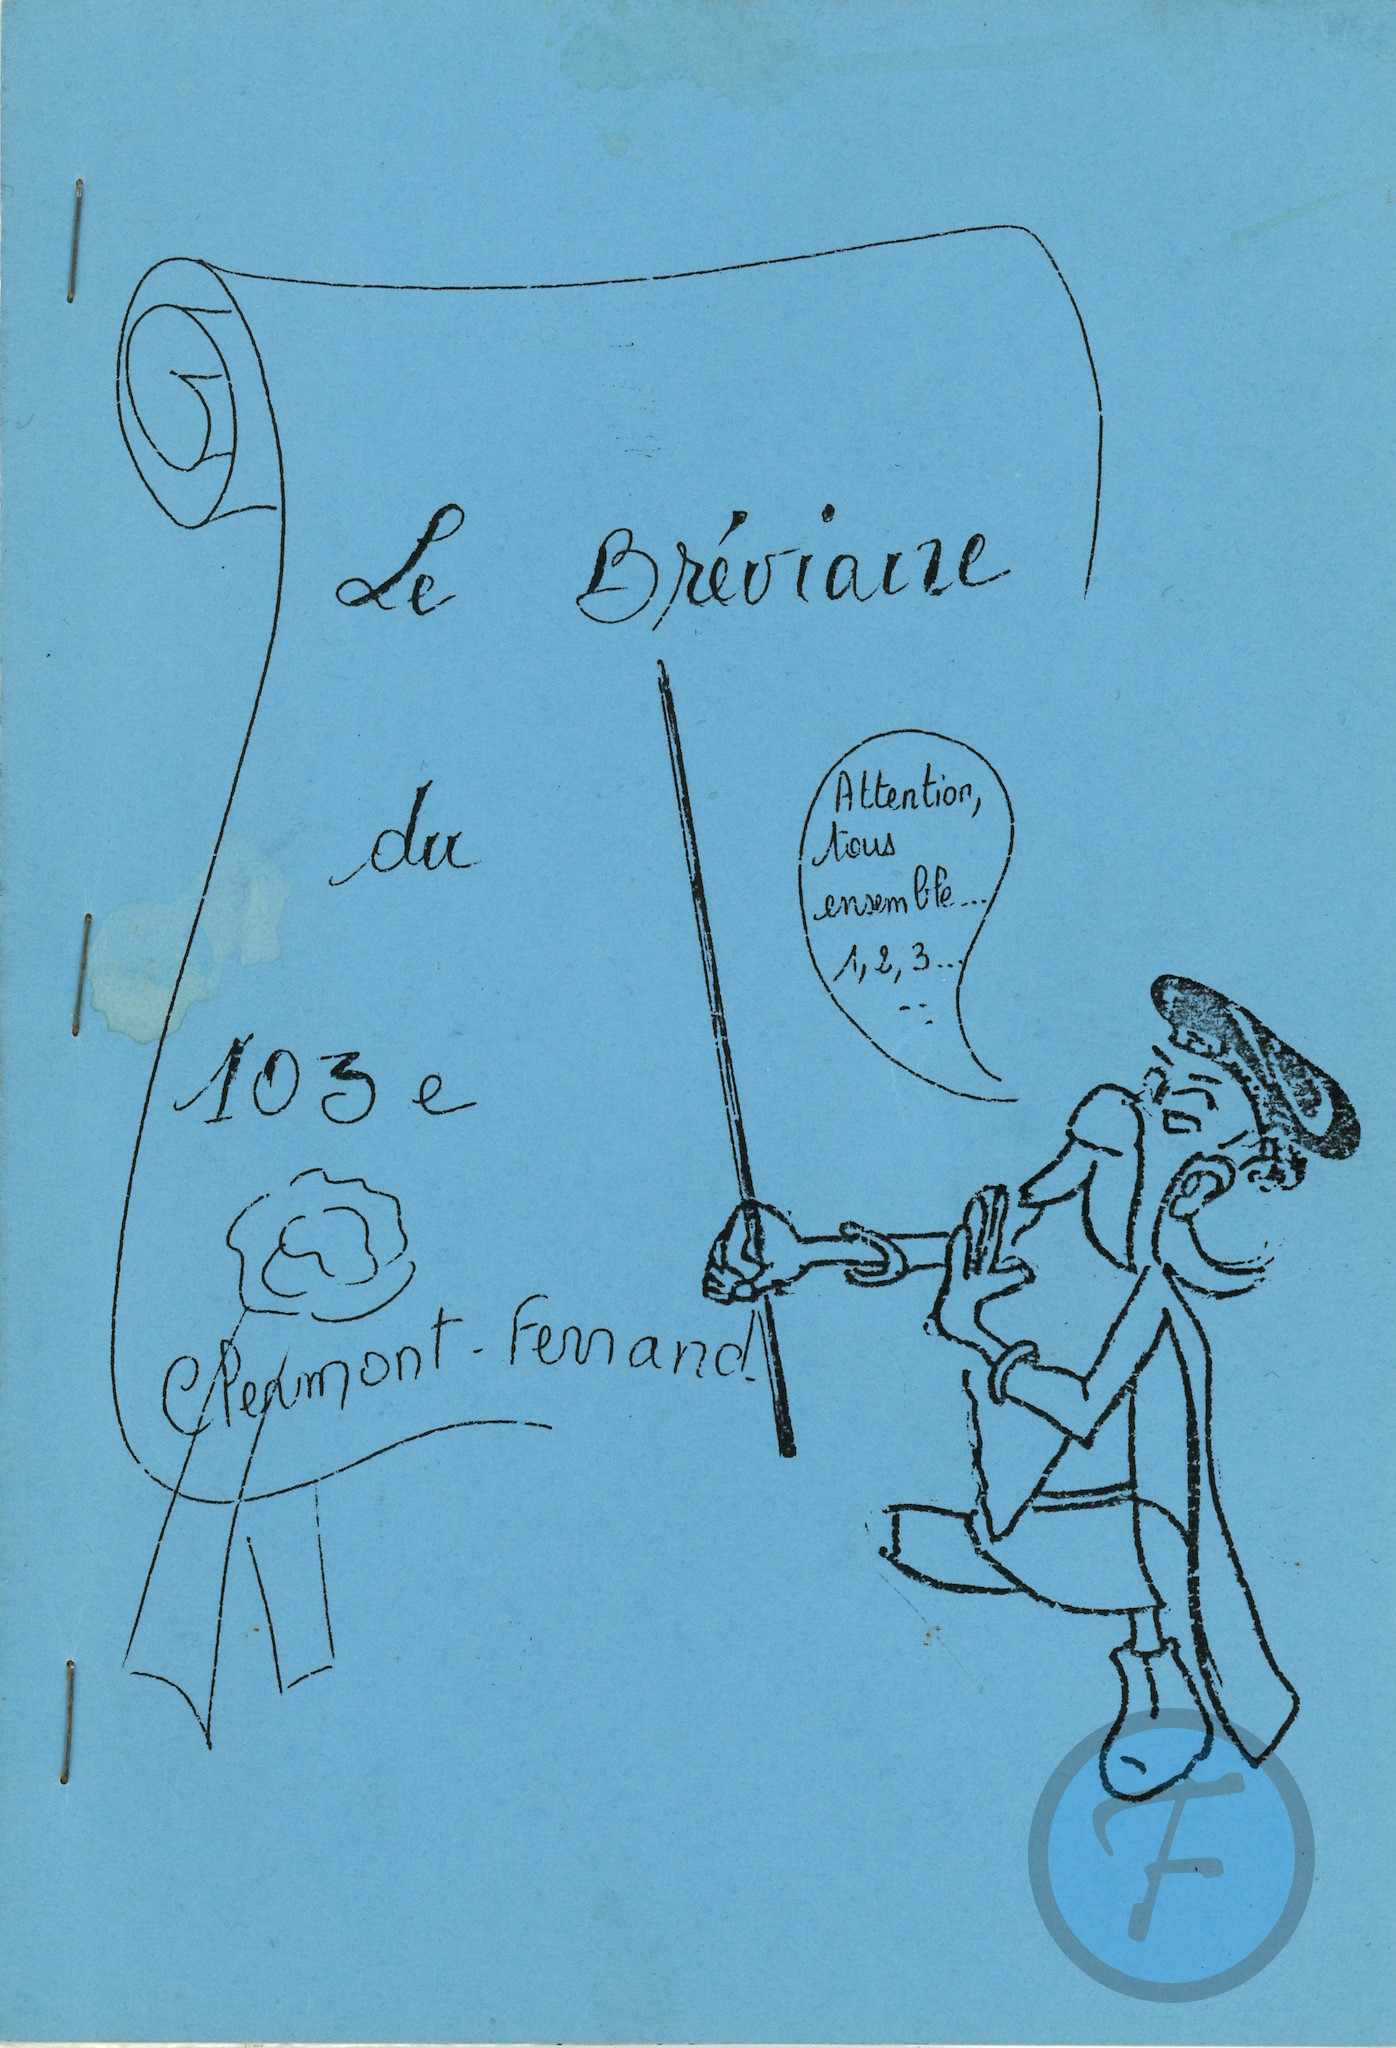 Le Bréviaire
du
103e
Clermont-Ferrand
Attention,
tous
ensemble...
1, 2, 3...
F